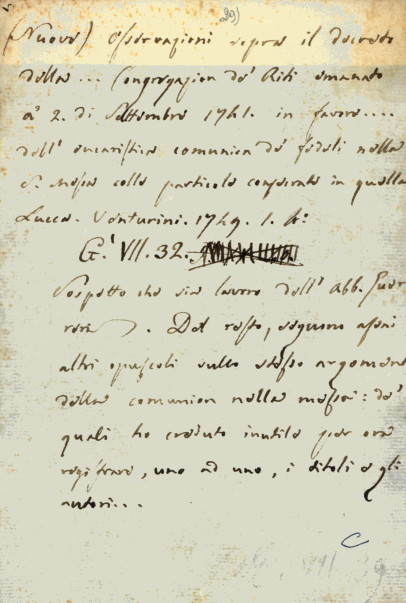 29)
(Nuove) Osservazioni sopra il decreto
della... Congregazion de' Riti emanato
a' 2. di Settembre 1741. in favore....
dell' eucaristica comunion de' fedeli nella
S. Messa colle particole consecrate in quella
Lucca. Venturini. 1749. 1. h:
G.' VII. 32.
Sospetto che sia lavoro dell' Abb. Guer
reri. Del resto, seguono assai
altri opuscoli sullo stesso argomento
della comunion nella messa: de'
quali ho creduto inutile per ora
registrare, uno ad uno, i titoli e gli
autori...
C